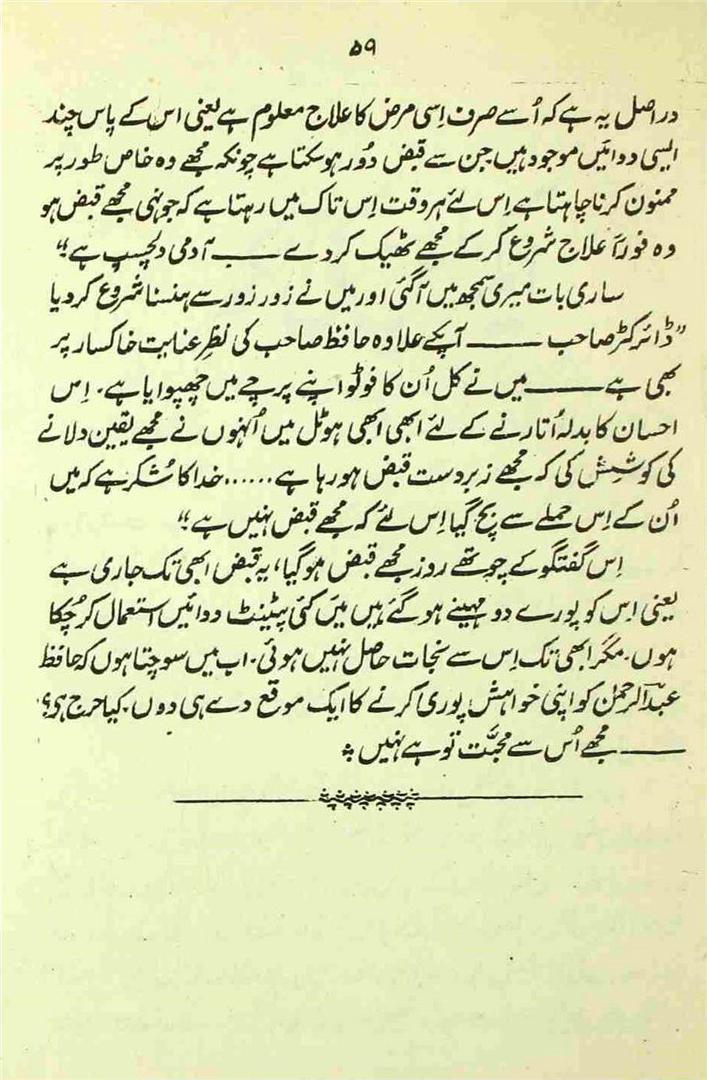 ۵۹
در اصل یہ ہے کہ اُسے صرف اِسی مرض کا علاج معلوم ہے یعنی اس کے پاس چند
ایسی دوائیں موجود ہیں جن سے قبض دُور ہو سکتا ہے چونکہ مجھے وہ خاص طور پر
ممنون کرنا چاہتا ہے اِس لئے ہر وقت اِس تاک میں رہتا ہے کہ جونہی مجھے قبض ہو
وہ فوراً علاج شروع کر کے مجھے ٹھیک کر دے —— آدمی دلچسپ ہے!“
ساری بات میری سمجھ میں آ گئی اور میں نے زور زور سے ہنسنا شروع کر دیا
”ڈائرکٹر صاحب —— آپکے علاوہ حافظ صاحب کی نظرِ عنایت خاکسار پر
بھی ہے —— میں نے کل اُن کا فوٹو اپنے پرچے میں چھپوایا ہے۔ اِس
احسان کا بدلہ اُتارنے کے لئے ابھی ابھی ہوٹل میں اُنہوں نے مجھے یقین دلانے
کی کوشش کی کہ مجھے زبردست قبض ہو رہا ہے ...... خدا کا شُکر ہے کہ میں
اُن کے اِس حملے سے بچ گیا اِس لئے کہ مجھے قبض نہیں ہے“
اِس گفتگو کے چوتھے روز مجھے قبض ہو گیا، یہ قبض ابھی تک جاری ہے
یعنی اِس کو پورے دو مہینے ہو گئے ہیں میں کئی پیٹنٹ دوائیں استعمال کر چکا
ہوں۔ مگر ابھی تک اِس سے نجات حاصل نہیں ہوئی۔ اب میں سوچتا ہوں کہ حافظ
عبدالرحمٰن کو اپنی خواہش پوری کرنے کا ایک موقع دے ہی دوں۔ کیا حرج ہی؟
—— مجھے اُس سے محبّت تو ہے نہیں۔